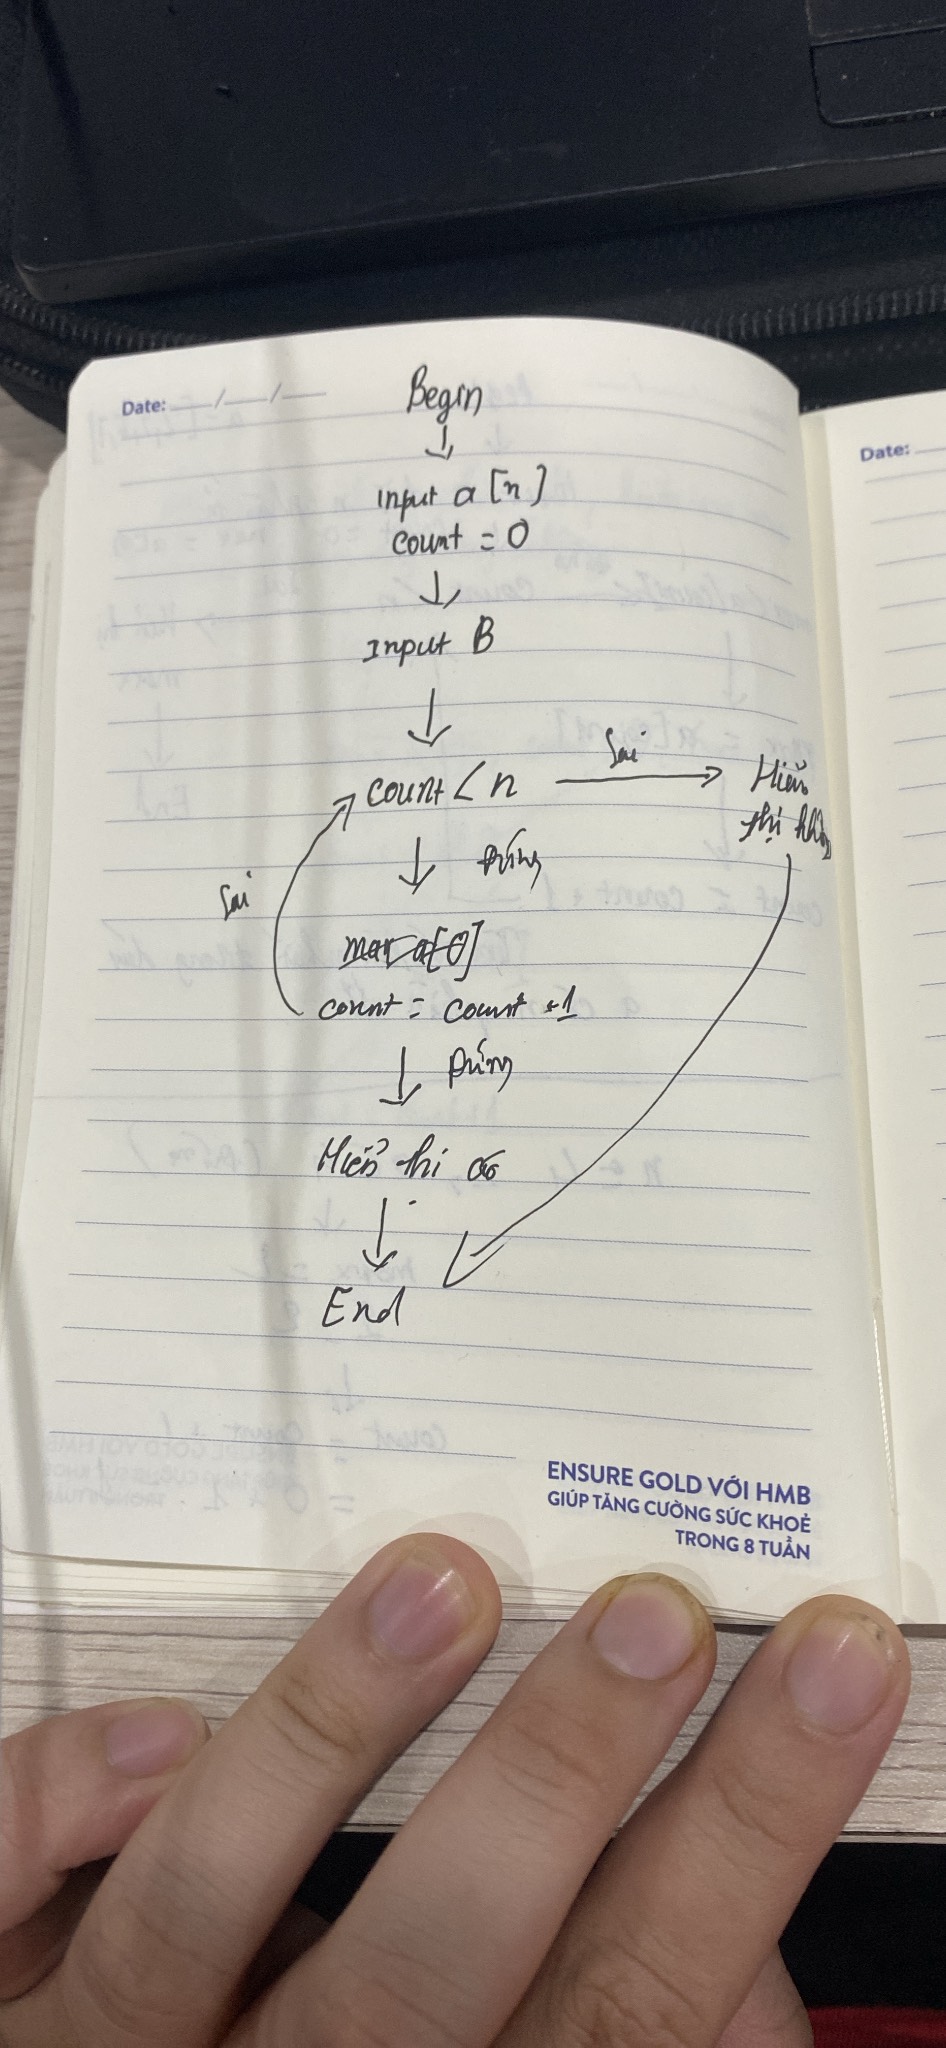 Date: __/__/__
Begin
↓
Input a [n]
count = 0
↓
Input B
↓
count < n
Sai
→
Hiển
thị không
↓ Đúng
Sai
max a[0]
count = count +1
↓ Đúng
Hiển thị có
↓
End
ENSURE GOLD VỚI HMB
GIÚP TĂNG CƯỜNG SỨC KHOẺ
TRONG 8 TUẦN
Date: __